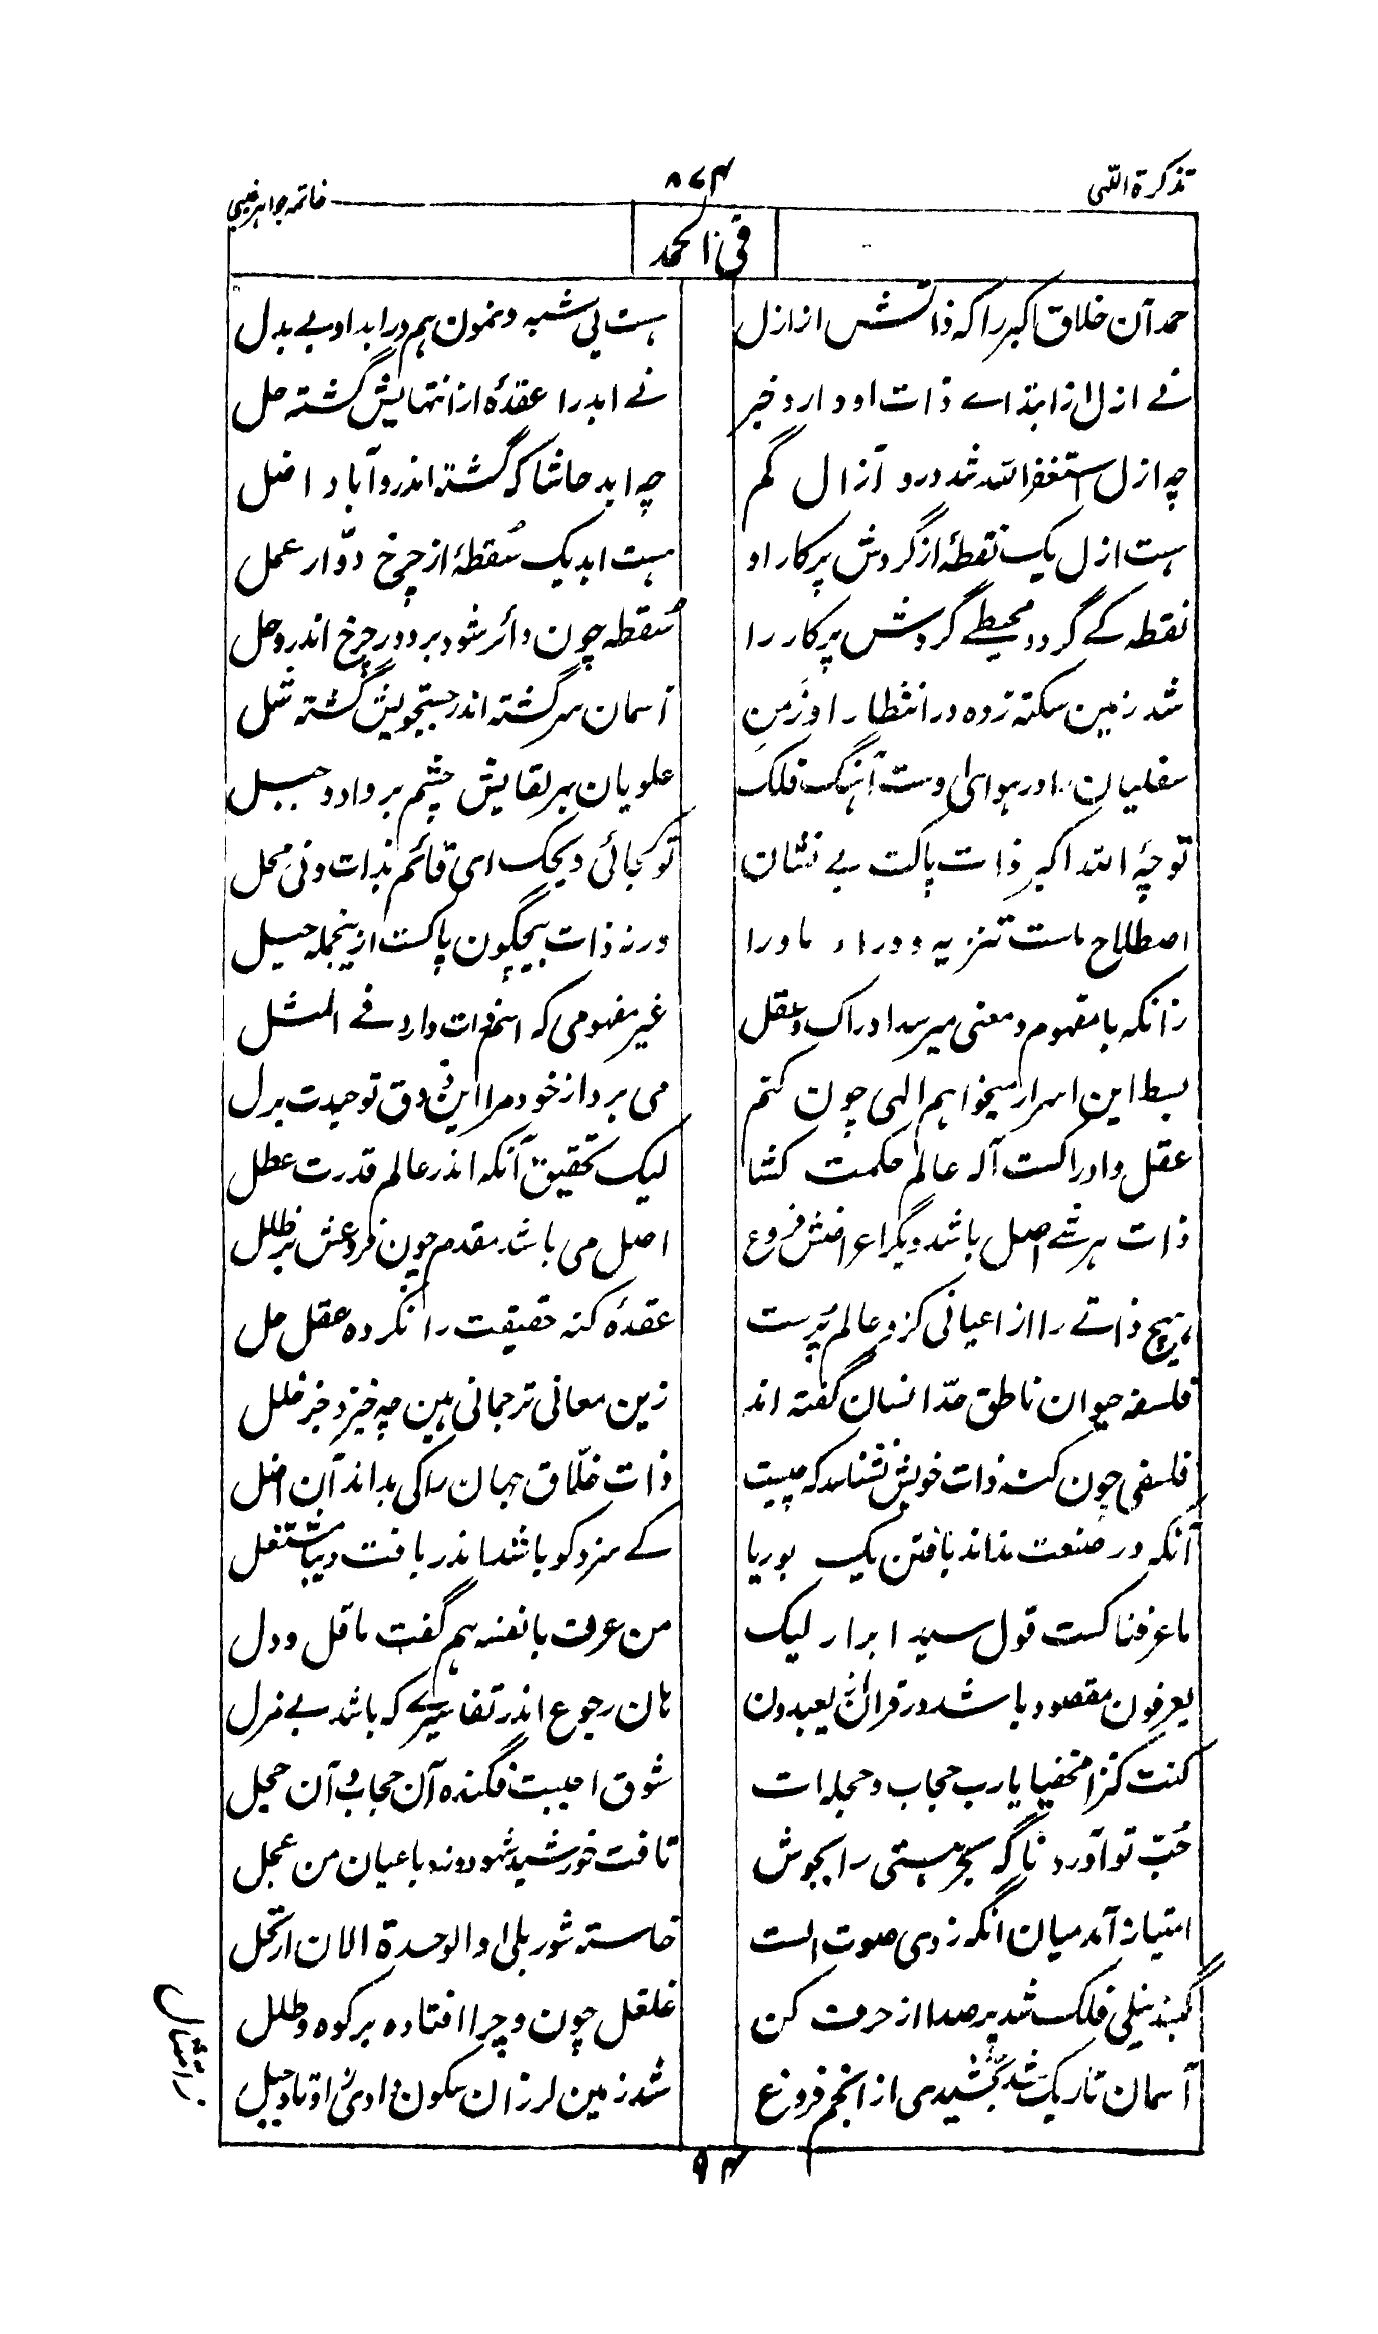 تذکرة اللّٰہی
۸۷۴
خاتمہ جواہر غیبی
فی الحمد
حمد آن خلاق اکبر را کہ ذاتش از ازل ہست بی شبہ و نمون ہم در ابد او بے بدل
نے ازل از ابتداے ذات او دارد خبر نے ابد را عقدۂ از انتہایش گشتہ حل
چہ ازل استغفر اللہ شد درو آزال گم چہ ابد حاشا کہ گشتہ اندرو آباد اضل
ہست ازل یک نقطۂ از گردش پرکار او ہست ابد یک سُقطۂ از چرخ دوّار عمل
نقطہ کے گردد محیطے گردش پرکار را سُقطہ چون دائر شود بر دور چرخ اندر وحل
شد زمین سکتہ زدہ در انتظار او زَمنِ آسمان سرگشتہ اندر جستجویش گشتہ شل
سفلیان را در ہوای اوست آہنگ فلک علویان بہر لقایش چشم بر وادو جبل
تو چۂ اللہ اکبر ذات پاکت بے نشان تو کجائی ویحک ای قائم بذات و نی محل
اصطلاح ماست تنزیہ و وراء ماورا ورنہ ذات بیچگون پاکست ازینجملہ حیل
زانکہ با مفہوم و معنی میرسد ادراک و عقل غیر مفہومی کہ اسم ذات دارد فے المثل
بسط این اسرار میخواہم الٰہی چون کنم می برد از خود مرا این ذوق توحیدت بدل
عقل و ادراکست آلہ عالم حکمت کشا لیک تحقیق آنکہ اندر عالم قدرت عطل
ذات ہر شے اصل باشد دیگر اعراضش فروع اصل می باشد مقدم چون فروعش بر ظلل
ہیچ ذاتے را از اعیانی کزو عالم پُرست عقدۂ کنہ حقیقت را نکردہ عقل حل
فلسفہ حیوان ناطق حدّ انسان گفتہ اند زین معانی ترجمانی بین چہ خیزد جز خلل
فلسفی چون کنہ ذات خویش نشناسد کہ چیست ذات خلّاق جہان را کی بداند آن اضل
آنکہ در صنعت نداند بافتن یک بوریا کے سزد کو باشد اندر بافت دیبا مشتغل
ما عرفناکست قول سید ابرار لیک من عرف با نفسہ ہم گفت ما قل و دل
یعرفون مقصود باشد در قرآن یعبدون ہان رجوع اندر تفاسیرے کہ باشد بے ہزل
کنت کنزا مخفیا یا رب حجاب و حجلہ ات شوق احببت فگندہ آن حجاب و آن حجل
حُبّ تو آورد ناگہ بحر ہستی را بجوش تافت خورشید شہود و زد باعیان من عجل
امتیاز آمد میان آنگہ زدی صوت الست خاستہ شور بلی و الوحدة الان ارتحل
گنبد نیلی فلک شد پر صدا از حرف کن غلغل چون و چرا افتادہ بر کوہ و طلل
آسمان تاریک شد بخشیدی از انجم فروغ شد زمین لرزان سکون دادی اوتاد جبل
زامتثال
۹۴